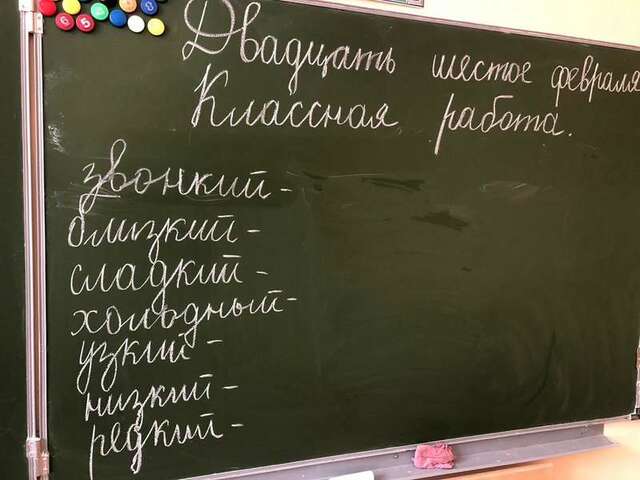 Двадцать шестое февраля
Классная работа.
звонкий -
близкий -
сладкий -
холодный -
узкий -
низкий -
редкий -